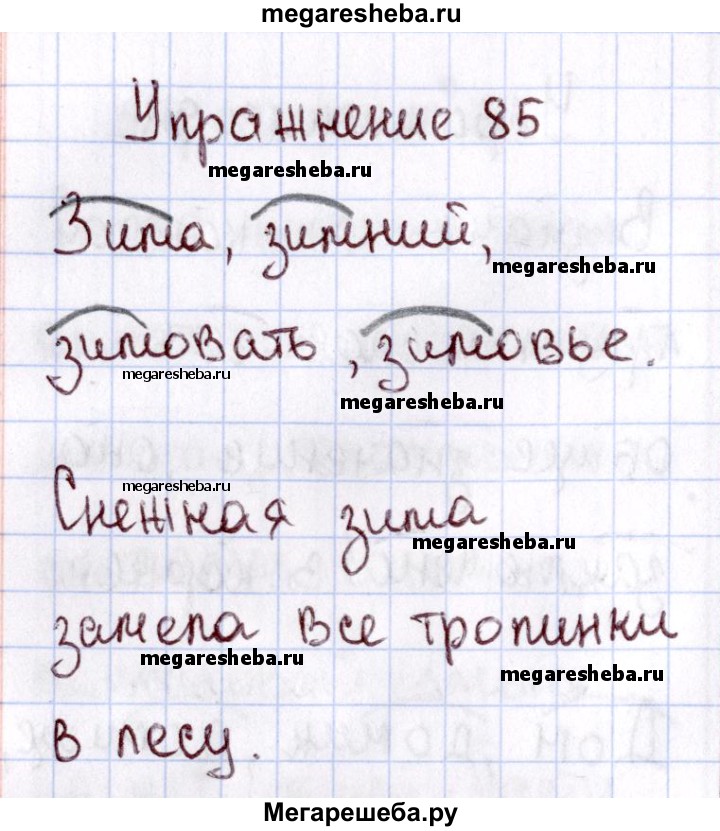 megaresheba.ru
Упражнение 85
megaresheba.ru
Зима, зимний,
megaresheba.ru
зимовать, зимовье.
megaresheba.ru
megaresheba.ru
megaresheba.ru
Снежная зима
megaresheba.ru
замела все тропинки
megaresheba.ru
megaresheba.ru
в лесу.
Мегарешеба.ру